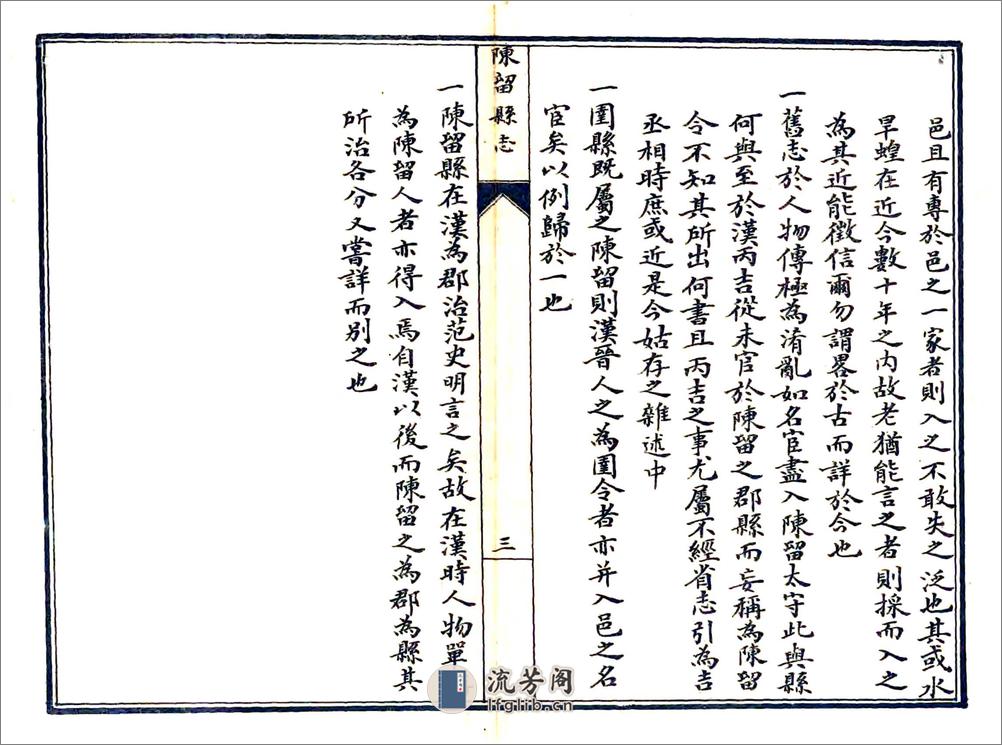 邑且有專於邑之一家者則入之不敢失之泛也其或水
旱蝗在近今數十年之內故老猶能言之者則採而入之
為其近能徵信爾勿謂畧於古而詳於今也
一舊志於人物傳極為淆亂如名宦盡入陳留太守此與縣
何與至於漢丙吉從未官於陳留之郡縣而妄稱為陳留
令不知其所出何書且丙吉之事尤屬不經省志引為吉
丞相時庶或近是今姑存之雜述中
一圉縣既屬之陳留則漢晉人之為圉令者亦并入邑之名
宦矣以例歸於一也
陳留縣志
三
一陳留縣在漢為郡治范史明言之矣故在漢時人物單
為陳留人者亦得入焉自漢以後而陳留之為郡為縣其
所治各分又嘗詳而別之也
流芳阁
lfglib.cn